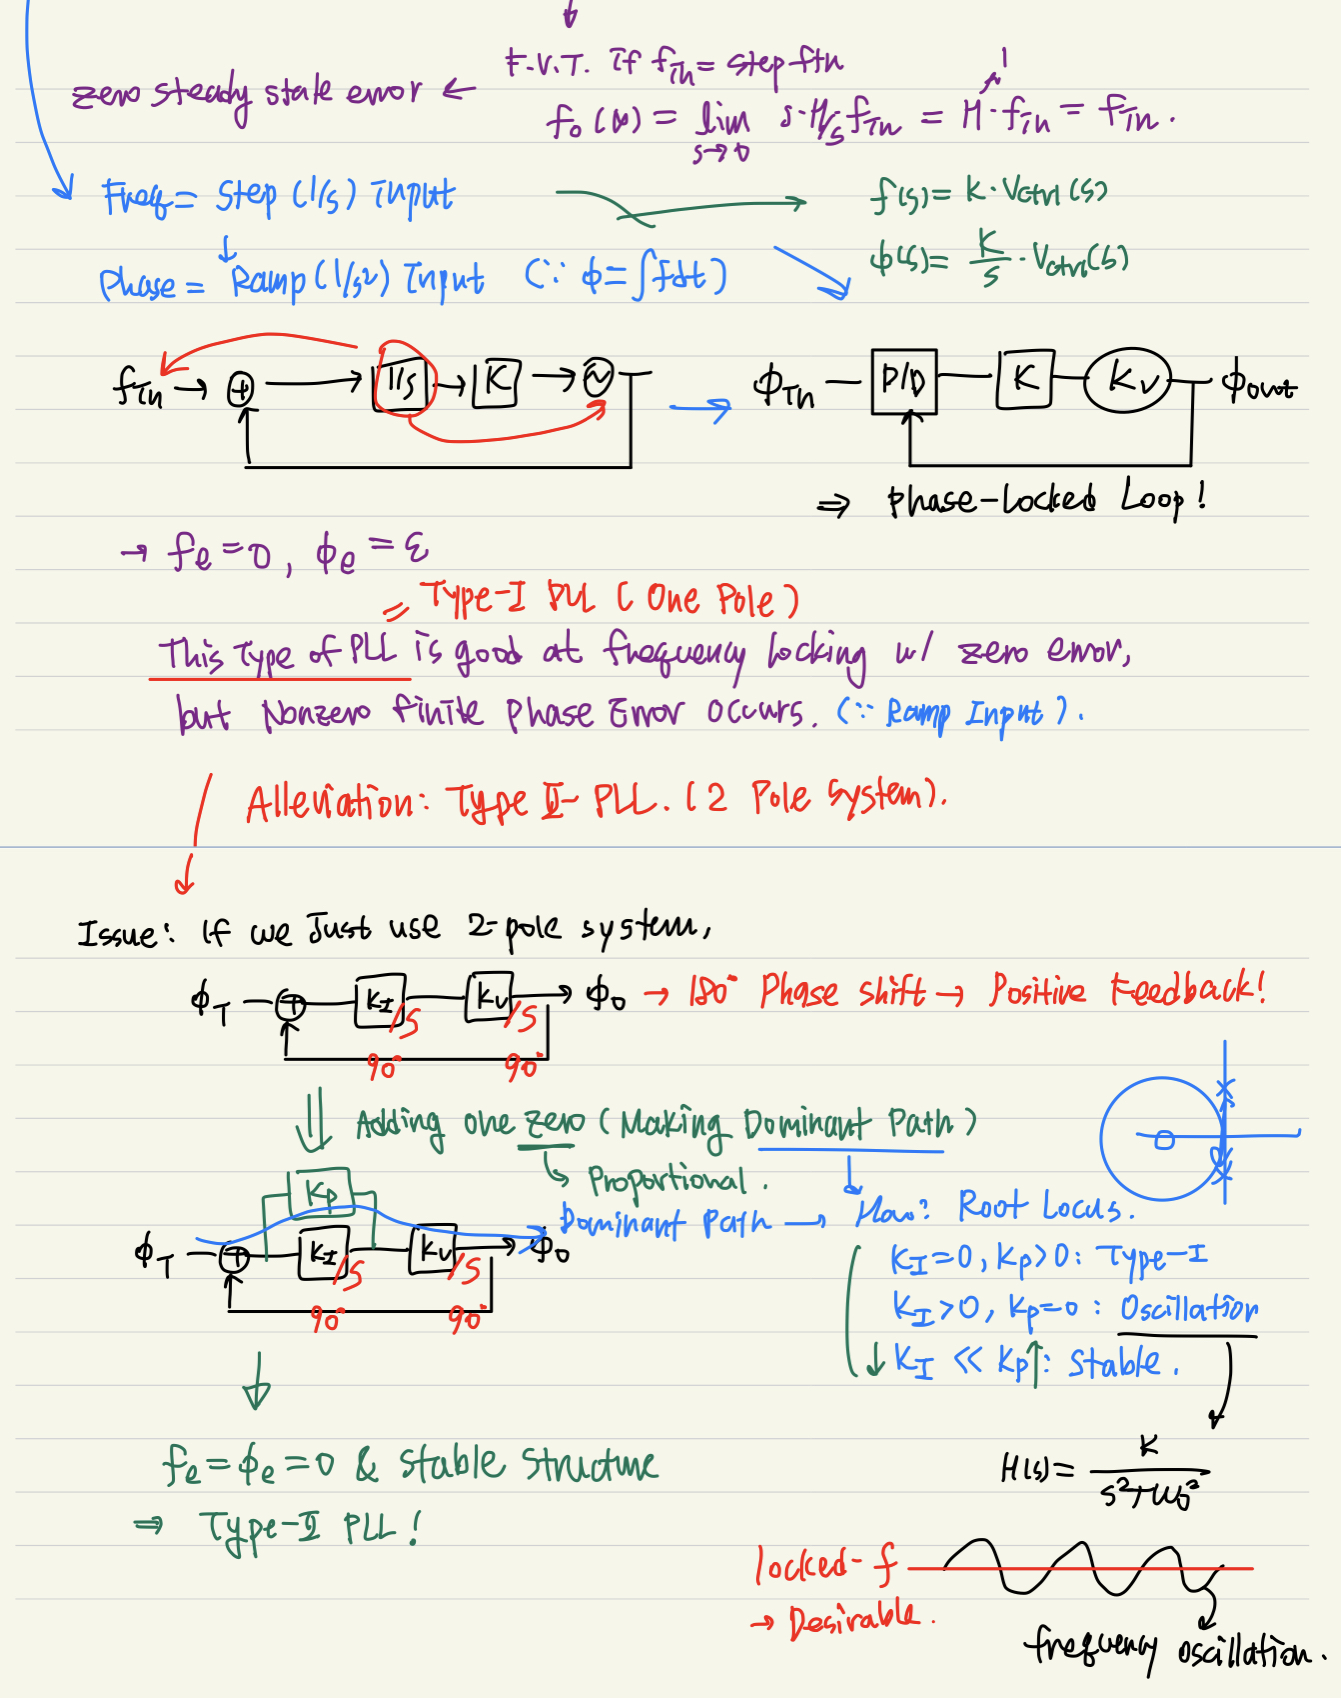 F.V.T. if f_in = step ftn
zero steady state error ←
f_o(∞) = lim_{s→0} s·H/s f_in = H·f_in = f_in.
1
Freq = Step (1/s) Input
f(s) = K·Vctrl(s)
↓
Phase = Ramp (1/s²) Input (∵ ϕ = ∫fdt)
ϕ(s) = K/s · Vctrl(s)
f_in → + → 1/s → K → ~
ϕ_in — P/D — K — K_v — ϕ_out
⇒ Phase-Locked Loop!
→ f_e = 0, ϕ_e = ε
= Type-I PLL (One Pole)
This Type of PLL is good at frequency locking w/ zero error,
but Nonzero finite Phase Error occurs. (∵ Ramp Input).
Alleviation: Type II- PLL. (2 Pole System).
Issue: If we Just use 2-pole system,
ϕ_I — + — K_I/S — K_v/S → ϕ_o → 180° Phase shift → Positive Feedback!
90° 90°
Adding one zero (Making Dominant Path)
↳ Proportional.
K_P
Dominant Path → How? Root Locus.
ϕ_I — + — K_I/S — K_v/S → ϕ_o
90° 90°
K_I = 0, K_P > 0 : Type-I
K_I > 0, K_P = 0 : Oscillation
↓ K_I << K_P ↑ : Stable.
f_e = ϕ_e = 0 & stable structure
H(s) = K / (s² + ω_0²)
⇒ Type-II PLL!
locked-f
→ Desirable.
frequency oscillation.